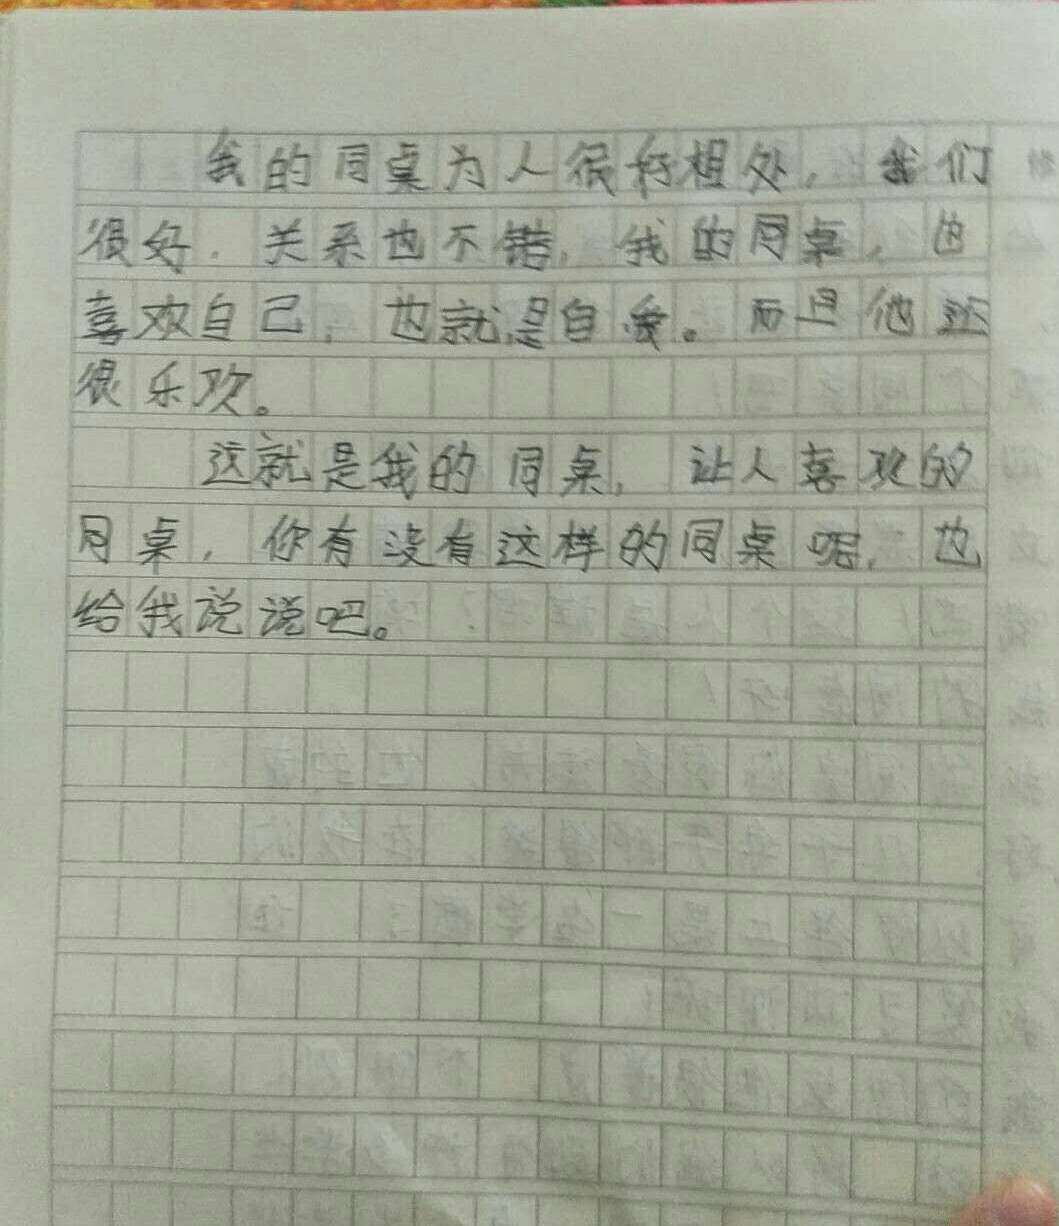 我的同桌为人很好相处，我们
很好．关系也不错，我的同桌、也
喜欢自己，也就是自爱。而且他还
很乐欢。
这就是我的同桌，让人喜欢的
同桌，你有没有这样的同桌呢，也
给我说说吧。